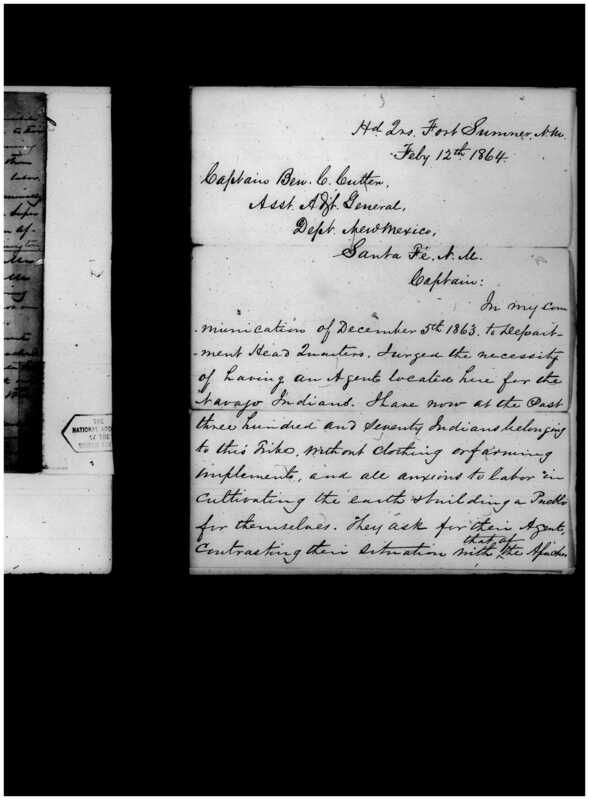 Hd Qrs. Fort Sumner, N.M.
Feby 12th 1864.
Captain Ben. C. Cutler,
Asst. Adjt. General,
Dept. New Mexico,
Santa Fé, N. M.
Captain:
In my com
munication of December 5th 1863. to Depart-
-ment Head Quarters, I urged the necessity
of having an Agent located here for the
Navajo Indians. I have now at the Post
three hundred and seventy Indians belonging
to this Tribe, without clothing or farming
implements, and all anxious to labor in
cultivating the earth & building a Pueblo
for themselves. They ask for their Agent,
contrasting their situation with that of the Apaches
THE
NATIONAL
OF THE